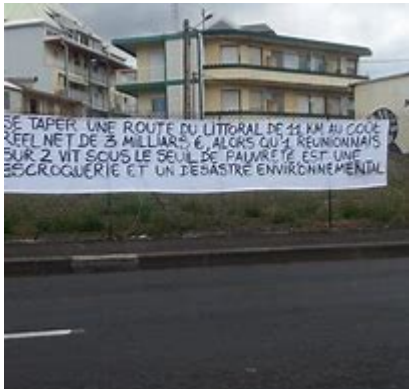 SE TAPER UNE ROUTE DU LITTORAL DE 11 KM AU COÛT
REEL NET DE 3 MILLIARS €, ALORS QU'1 REUNIONNAIS
SUR 2 VIT SOUS LE SEUIL DE PAUVRETÉ EST UNE
ESCROQUERIE ET UN DESASTRE ENVIRONNEMENTAL